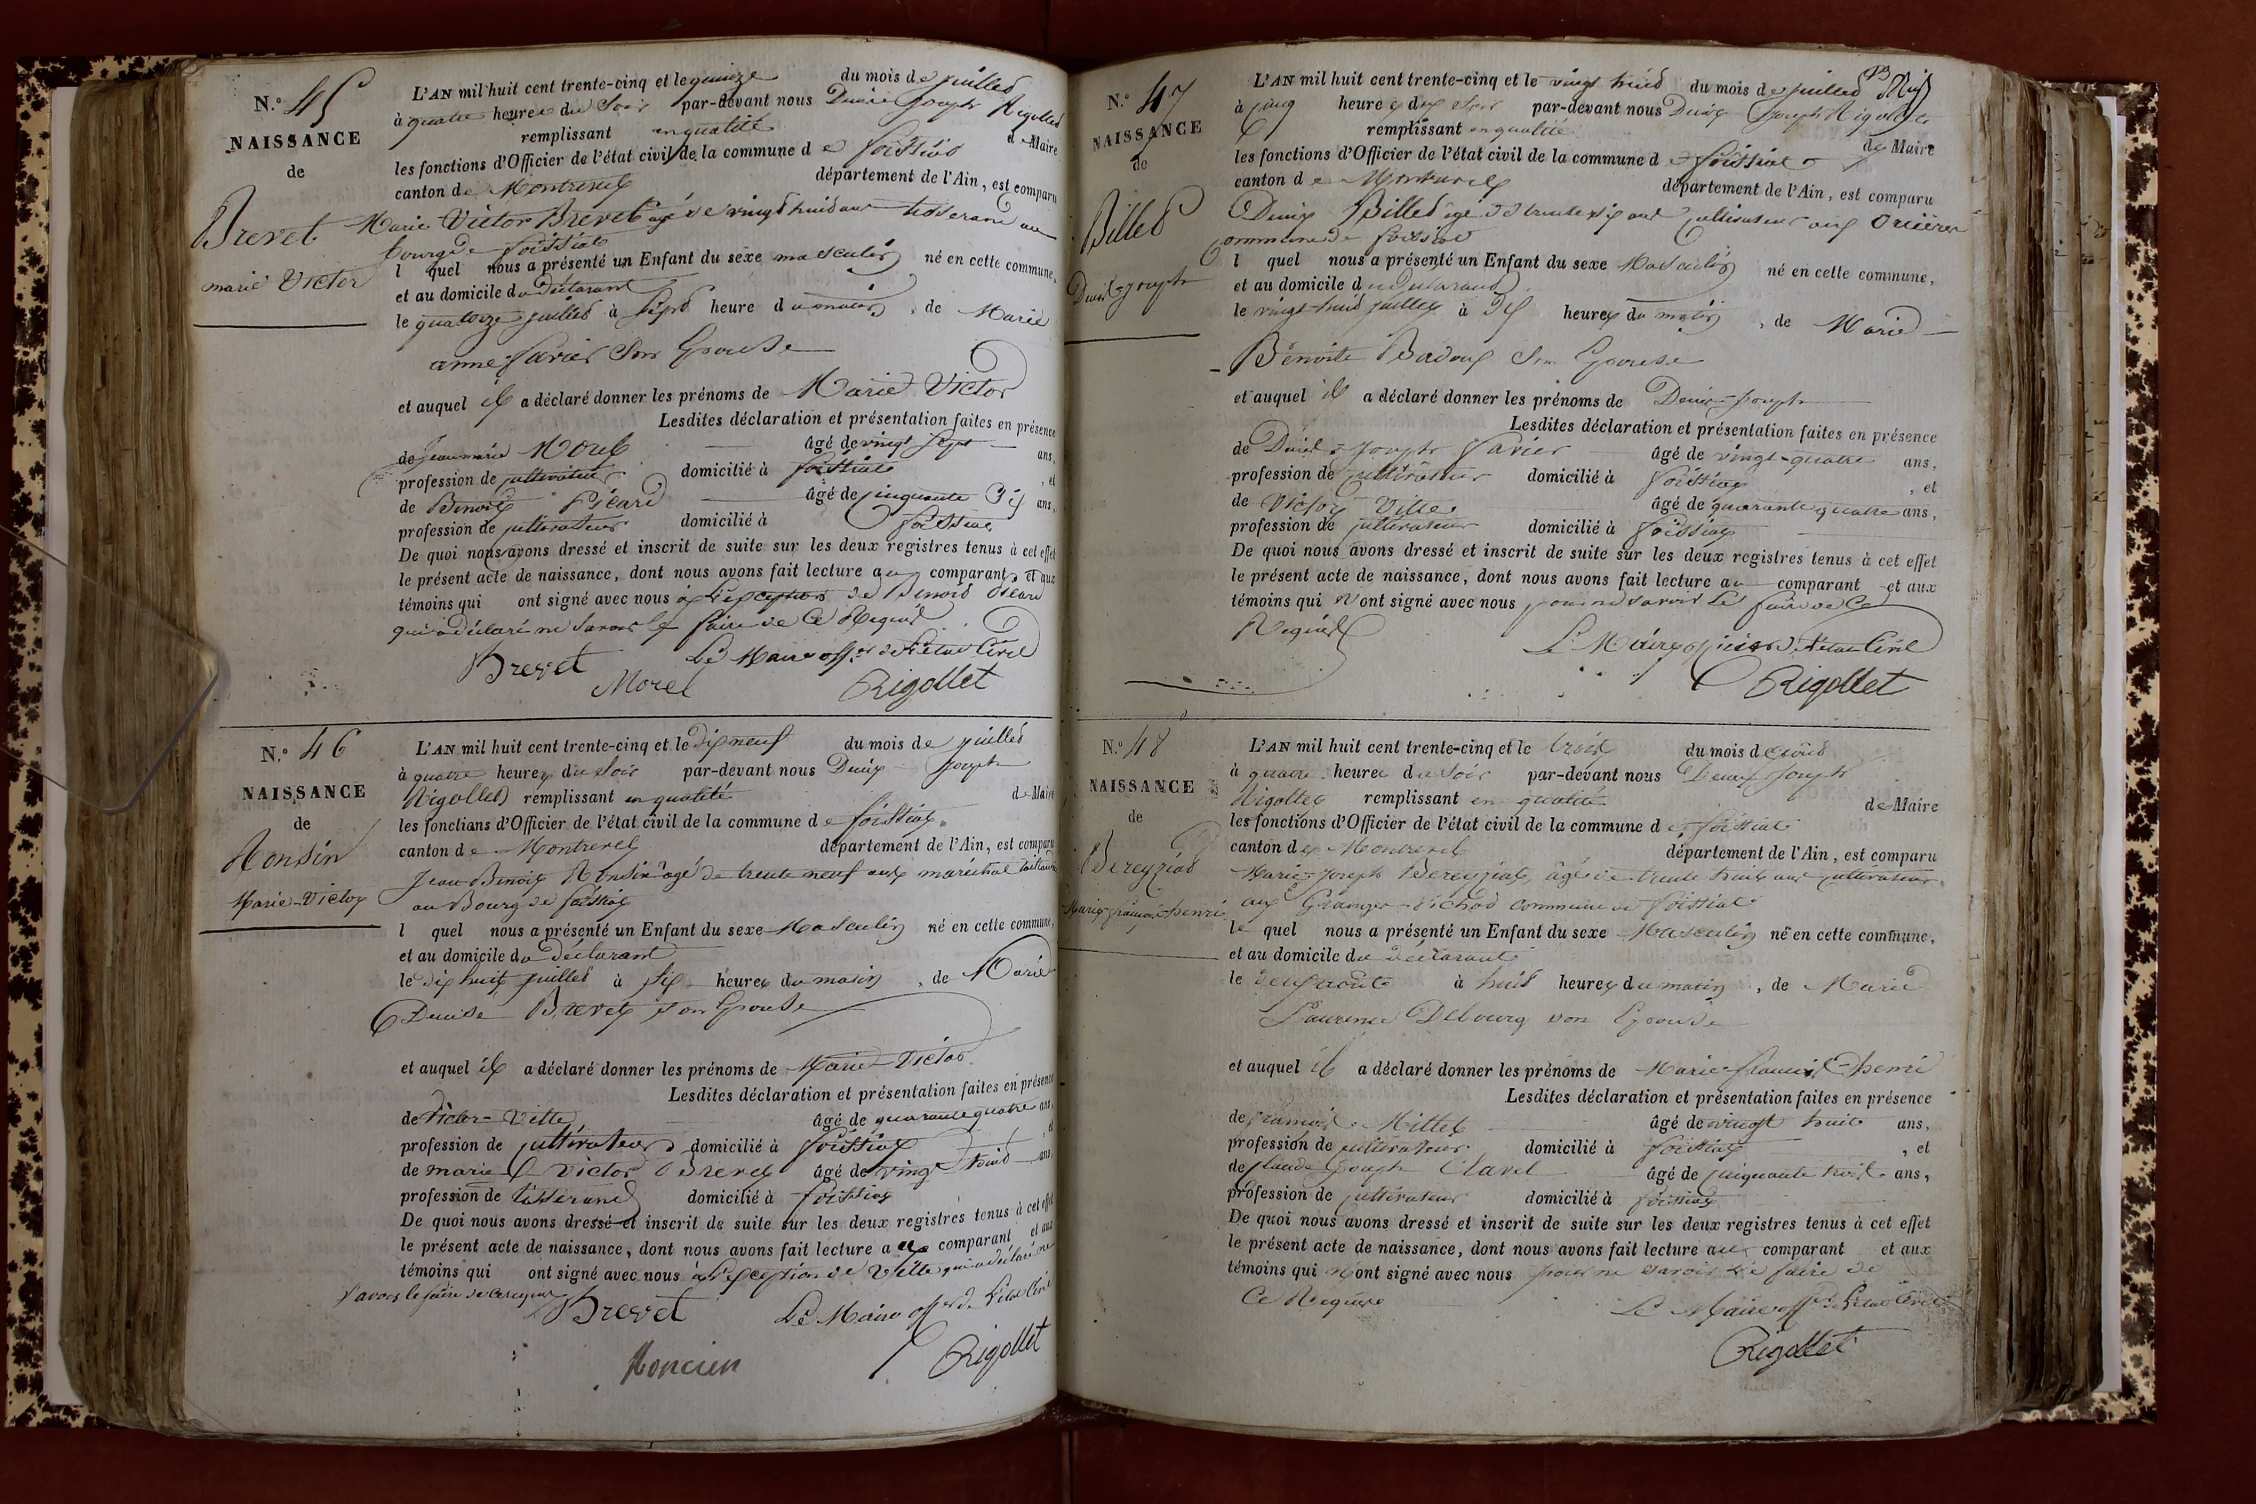 N.° 45
NAISSANCE
de
Brevet
marie Victor
L'AN mil huit cent trente-cinq et le quinze du mois de juillet
à quatre heures du Soir par-devant nous Denis Joseph Rigollet
remplissant en qualité de Maire
les fonctions d'Officier de l'état civil de la commune de foissiat
canton de Montrevel département de l'Ain, est comparu
Marie Victor Brevet agé de vingt huit ans tisserand au
bourg de foissiat
l quel nous a présenté un Enfant du sexe masculin né en cette commune,
et au domicile du déclarant
le quatorze juillet à sept heure du matin, de Marie
anne favier Son Epouse
et auquel il a déclaré donner les prénoms de Marie Victor
Lesdites déclaration et présentation faites en présence
de Jean marie Morel âgé de vingt sept ans,
profession de cultivateur domicilié à foissiat, et
de Benoit Picard âgé de cinquante six ans,
profession de cultivateur domicilié à foissiat
De quoi nous avons dressé et inscrit de suite sur les deux registres tenus à cet effet
le présent acte de naissance, dont nous avons fait lecture aux comparant et aux
témoins qui ont signé avec nous à l'exception de Benoit Picard
qui a déclaré ne Savoir le faire de Ce Requis
Le Maire off.er de l'état Civil
Brevet
Morel Rigollet
N.° 46
NAISSANCE
de
Monsin
Marie-Victor
L'AN mil huit cent trente-cinq et le dix neuf du mois de juillet
à quatre heures du Soir par-devant nous Denis Joseph
Rigollet remplissant en qualité de Maire
les fonctions d'Officier de l'état civil de la commune de foissiat
canton de Montrevel département de l'Ain, est comparu
Jean Benoit Monsin agé de trente neuf ans maréchal
au Bourg de foissiat
l quel nous a présenté un Enfant du sexe Masculin né en cette commune,
et au domicile du déclarant
le dix huit juillet à six heures du matin, de Marie
Denise Brevet son Epouse
et auquel il a déclaré donner les prénoms de Marie Victor
Lesdites déclaration et présentation faites en présence
de Victor Ville âgé de quarante quatre ans,
profession de cultivateur domicilié à foissiat, et
de marie Victor Brevet âgé de vingt huit ans
profession de tisserand domicilié à foissiat
De quoi nous avons dressé et inscrit de suite sur les deux registres tenus à cet effet
le présent acte de naissance, dont nous avons fait lecture au comparant et aux
témoins qui ont signé avec nous à l'exception de Ville qui a déclaré ne
Savoir le faire de ce requis
Brevet Le Maire off.er de l'état Civil
Moncien Rigollet
N.° 47
NAISSANCE
de
Billet
Denis-Joseph
L'AN mil huit cent trente-cinq et le vingt huit du mois de juillet
à cinq heures du Soir par-devant nous Denis Joseph Rigollet
remplissant en qualité de Maire
les fonctions d'Officier de l'état civil de la commune de foissiat
canton de Montrevel département de l'Ain, est comparu
Denis Billet agé de trente six ans Cultivateur aux Orcières
Commune de foissiat
l quel nous a présenté un Enfant du sexe Masculin né en cette commune,
et au domicile du déclarant
le vingt-huit juillet à dix heures du matin, de Marie
Benoite Badoux Son Epouse
et auquel il a déclaré donner les prénoms de Denis-Joseph
Lesdites déclaration et présentation faites en présence
de Denis-Joseph favier âgé de vingt-quatre ans,
profession de cultivateur domicilié à foissiat, et
de Victor Ville âgé de quarante quatre ans,
profession de cultivateur domicilié à foissiat
De quoi nous avons dressé et inscrit de suite sur les deux registres tenus à cet effet
le présent acte de naissance, dont nous avons fait lecture au comparant et aux
témoins qui n'ont signé avec nous pour ne savoir le faire de Ce
Requis
Le Maire officier de l'état Civil
Rigollet
N.° 48
NAISSANCE
de
Bereyziat
Marie françois-henri
L'AN mil huit cent trente-cinq et le trois du mois d'août
à quatre heures du Soir par-devant nous Denis Joseph
Rigollet remplissant en qualité de Maire
les fonctions d'Officier de l'état civil de la commune de foissiat
canton de Montrevel département de l'Ain, est comparu
Marie-Joseph Bereyziat, âgé de trente huit ans cultivateur
aux Granges-Vichod commune de foissiat
le quel nous a présenté un Enfant du sexe Masculin né en cette commune,
et au domicile du déclarant
le deux août à huit heures du matin, de Marie
Laurence Debourg son Epouse
et auquel il a déclaré donner les prénoms de Marie-françois-henri
Lesdites déclaration et présentation faites en présence
de françois Millet âgé de vingt huit ans,
profession de cultivateur domicilié à foissiat, et
de Claude Joseph Clavel âgé de cinquante trois ans,
profession de cultivateur domicilié à foissiat
De quoi nous avons dressé et inscrit de suite sur les deux registres tenus à cet effet
le présent acte de naissance, dont nous avons fait lecture au comparant et aux
témoins qui n'ont signé avec nous pour ne savoir le faire de
Ce Requis Le Maire off.er de l'état Civil
Rigollet